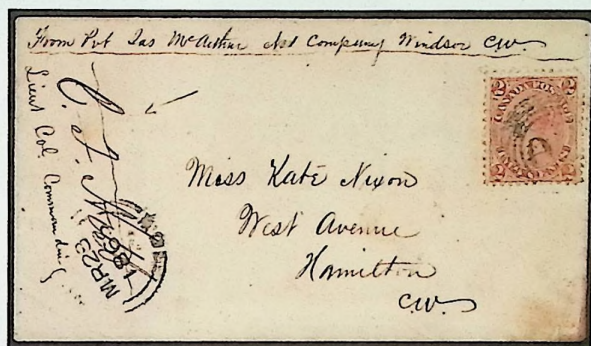 From Pvt Jas McArthur Company Windsor C.W.
Lieut Col. Commanding
MR 23
CANADA POSTAGE
2
2
2
2
Miss Kate Nixon
West Avenue
Hamilton
C.W.